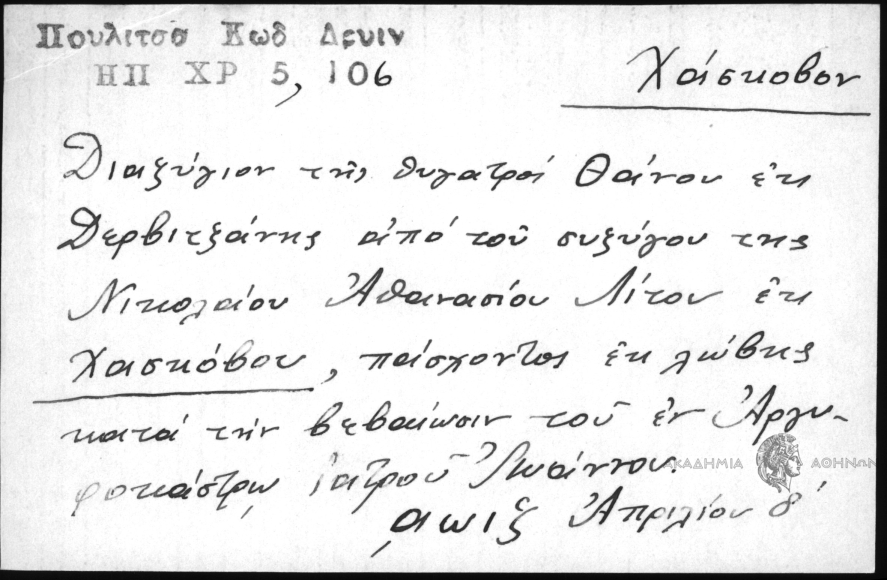 Πουλιτσα Κωδ Δρυιν
ΗΠ ΧΡ 5, 106
Χάσκοβον
Διαζύγιον τῆς θυγατρός Θάνου ἐκ
Δερβιτζάνης ἀπό τοῦ συζύγου της
Νικολαίου Ἀθανασίου Λίτου ἐκ
Χασκόβου, πάσχοντος ἐκ λώβης
κατά τήν βεβαίωσιν τοῦ ἐν Ἀργυ-
ροκάστρῳ ἰατροῦ Ἰωάννου.
͵αωιζ Ἀπριλίου δ΄
ΑΚΑΔΗΜΙΑ ΑΘΗΝΩΝ